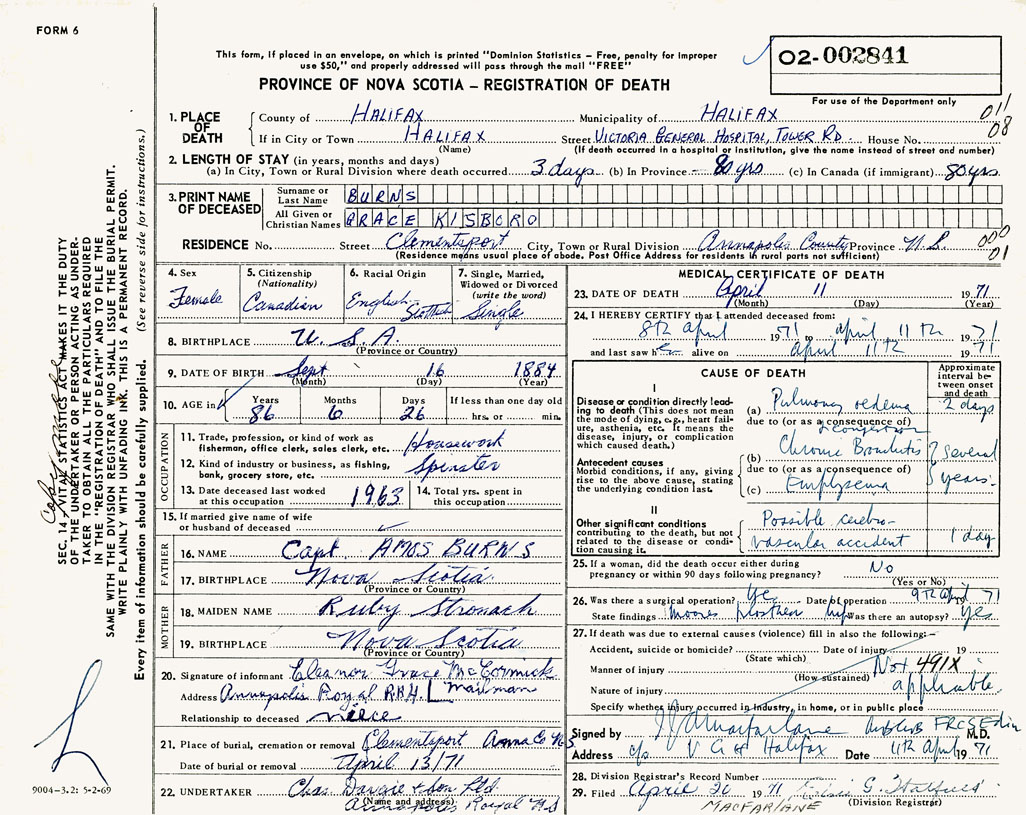 FORM 6
This form, if placed in an envelope, on which is printed "Dominion Statistics – Free, penalty for improper
use $50," and properly addressed will pass through the mail "FREE"
PROVINCE OF NOVA SCOTIA – REGISTRATION OF DEATH
O2-002841
For use of the Department only
011
08
1. PLACE OF DEATH
County of HALIFAX Municipality of HALIFAX
If in City or Town HALIFAX Street VICTORIA GENERAL HOSPITAL, TOWER RD. House No.
(Name) (If death occurred in a hospital or institution, give the name instead of street and number)
2. LENGTH OF STAY (in years, months and days)
(a) In City, Town or Rural Division where death occurred 3 days (b) In Province 80 yrs (c) In Canada (if immigrant) 80 yrs.
3. PRINT NAME OF DECEASED
Surname or Last Name BURNS
All Given or Christian Names GRACE KISBORO
RESIDENCE No. Street Clementsport City, Town or Rural Division Annapolis County Province N.S.
(Residence means usual place of abode. Post Office Address for residents in rural parts not sufficient)
000
01
4. Sex
Female
5. Citizenship
(Nationality)
Canadian
6. Racial Origin
English Scottish
7. Single, Married,
Widowed or Divorced
(write the word)
Single
8. BIRTHPLACE U.S.A.
(Province or Country)
9. DATE OF BIRTH Sept 16 1884
(Month) (Day) (Year)
10. AGE in
Years Months Days If less than one day old
86 6 26 hrs. or min.
OCCUPATION
11. Trade, profession, or kind of work as
fisherman, office clerk, sales clerk, etc. Housework
12. Kind of industry or business, as fishing,
bank, grocery store, etc. Spinster
13. Date deceased last worked
at this occupation 1963
14. Total yrs. spent in
this occupation
15. If married give name of wife
or husband of deceased
FATHER
16. NAME Capt AMOS BURNS
17. BIRTHPLACE Nova Scotia
(Province or Country)
MOTHER
18. MAIDEN NAME Ruby Stronach
19. BIRTHPLACE Nova Scotia
(Province or Country)
20. Signature of informant Eleanor Grace McCormick
Address Annapolis Royal RR#1 Mailman
Relationship to deceased niece
21. Place of burial, cremation or removal Clementsport Anna Co NS
Date of burial or removal April 13/71
22. UNDERTAKER Chas. & Son Ltd.
(Name and address) Annapolis Royal N.S
MEDICAL CERTIFICATE OF DEATH
23. DATE OF DEATH April 11 1971
(Month) (Day) (Year)
24. I HEREBY CERTIFY that I attended deceased from:
8th April 1971 to April 11th 1971
and last saw her alive on April 11th 1971
CAUSE OF DEATH
Approximate
interval be-
tween onset
and death
I
Disease or condition directly lead-
ing to death (This does not mean
the mode of dying, e.g., heart fail-
ure, asthenia, etc. It means the
disease, injury, or complication
which caused death.)
(a) Pulmonary oedema 2 days
due to (or as a consequence of)
& congestion
Antecedent causes
Morbid conditions, if any, giving
rise to the above cause, stating
the underlying condition last.
(b) Chronic Bronchitis several
due to (or as a consequence of)
(c) Emphysema years.
II
Other significant conditions
contributing to the death, but not
related to the disease or condi-
tion causing it.
Possible cerebro-
vascular accident 1 day
25. If a woman, did the death occur either during
pregnancy or within 90 days following pregnancy? No
(Yes or No)
26. Was there a surgical operation? Yes Date of operation 9th April 1971
State findings Moores hip Was there an autopsy? Yes
27. If death was due to external causes (violence) fill in also the following:–
Accident, suicide or homicide? Date of injury 19
(State which)
Manner of injury Not 491X
(How sustained)
Nature of injury applicable
Specify whether injury occurred in industry, in home, or in public place
Signed by Macfarlane FRCS Edin M.D.
Address c/o V G H Halifax Date 11th April 1971
28. Division Registrar's Record Number
29. Filed April 20 1971
(Division Registrar)
MACFARLANE
SEC. 14 VITAL STATISTICS ACT MAKES IT THE DUTY
OF THE UNDERTAKER OR PERSON ACTING AS UNDER-
TAKER TO OBTAIN ALL THE PARTICULARS REQUIRED
IN THE "REGISTRATION OF DEATH" AND TO FILE THE
SAME WITH THE DIVISION REGISTRAR WHO SHALL ISSUE THE BURIAL PERMIT.
WRITE PLAINLY WITH UNFADING INK. THIS IS A PERMANENT RECORD.
Every item of information should be carefully supplied. (See reverse side for instructions.)
9004-3.2: 5-2-69